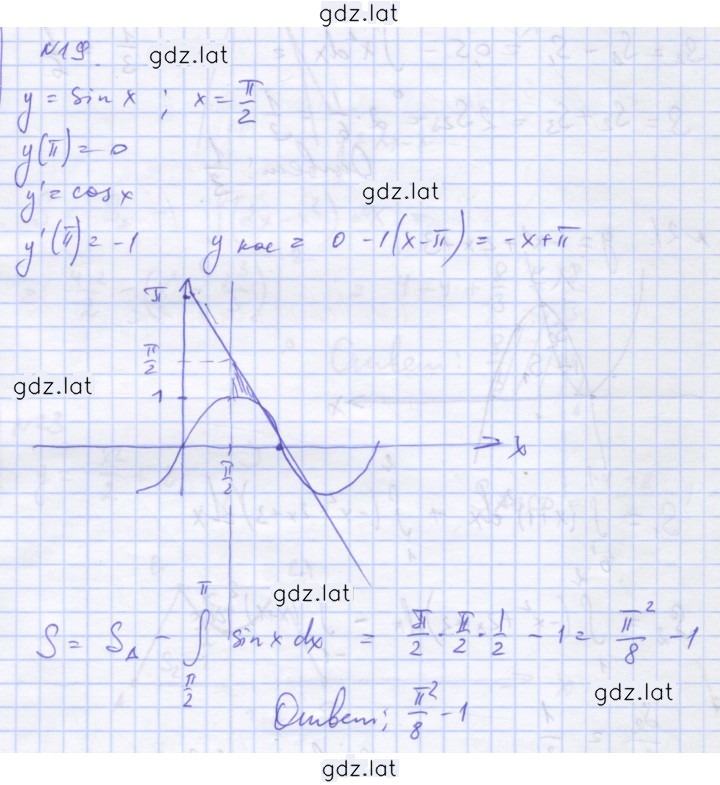 gdz.lat
N19.
gdz.lat
y = sin x ; x = π/2
y(π) = 0
y' = cos x
gdz.lat
y'(π) = -1 y кас = 0 - 1(x - π) = -x + π
π
π/2
gdz.lat
1
x
π/2
gdz.lat
S = S△ - ∫_{π/2}^{π} sin x dx = π/2 · π/2 · 1/2 - 1 = π²/8 - 1
gdz.lat
Ответ; π²/8 - 1
gdz.lat